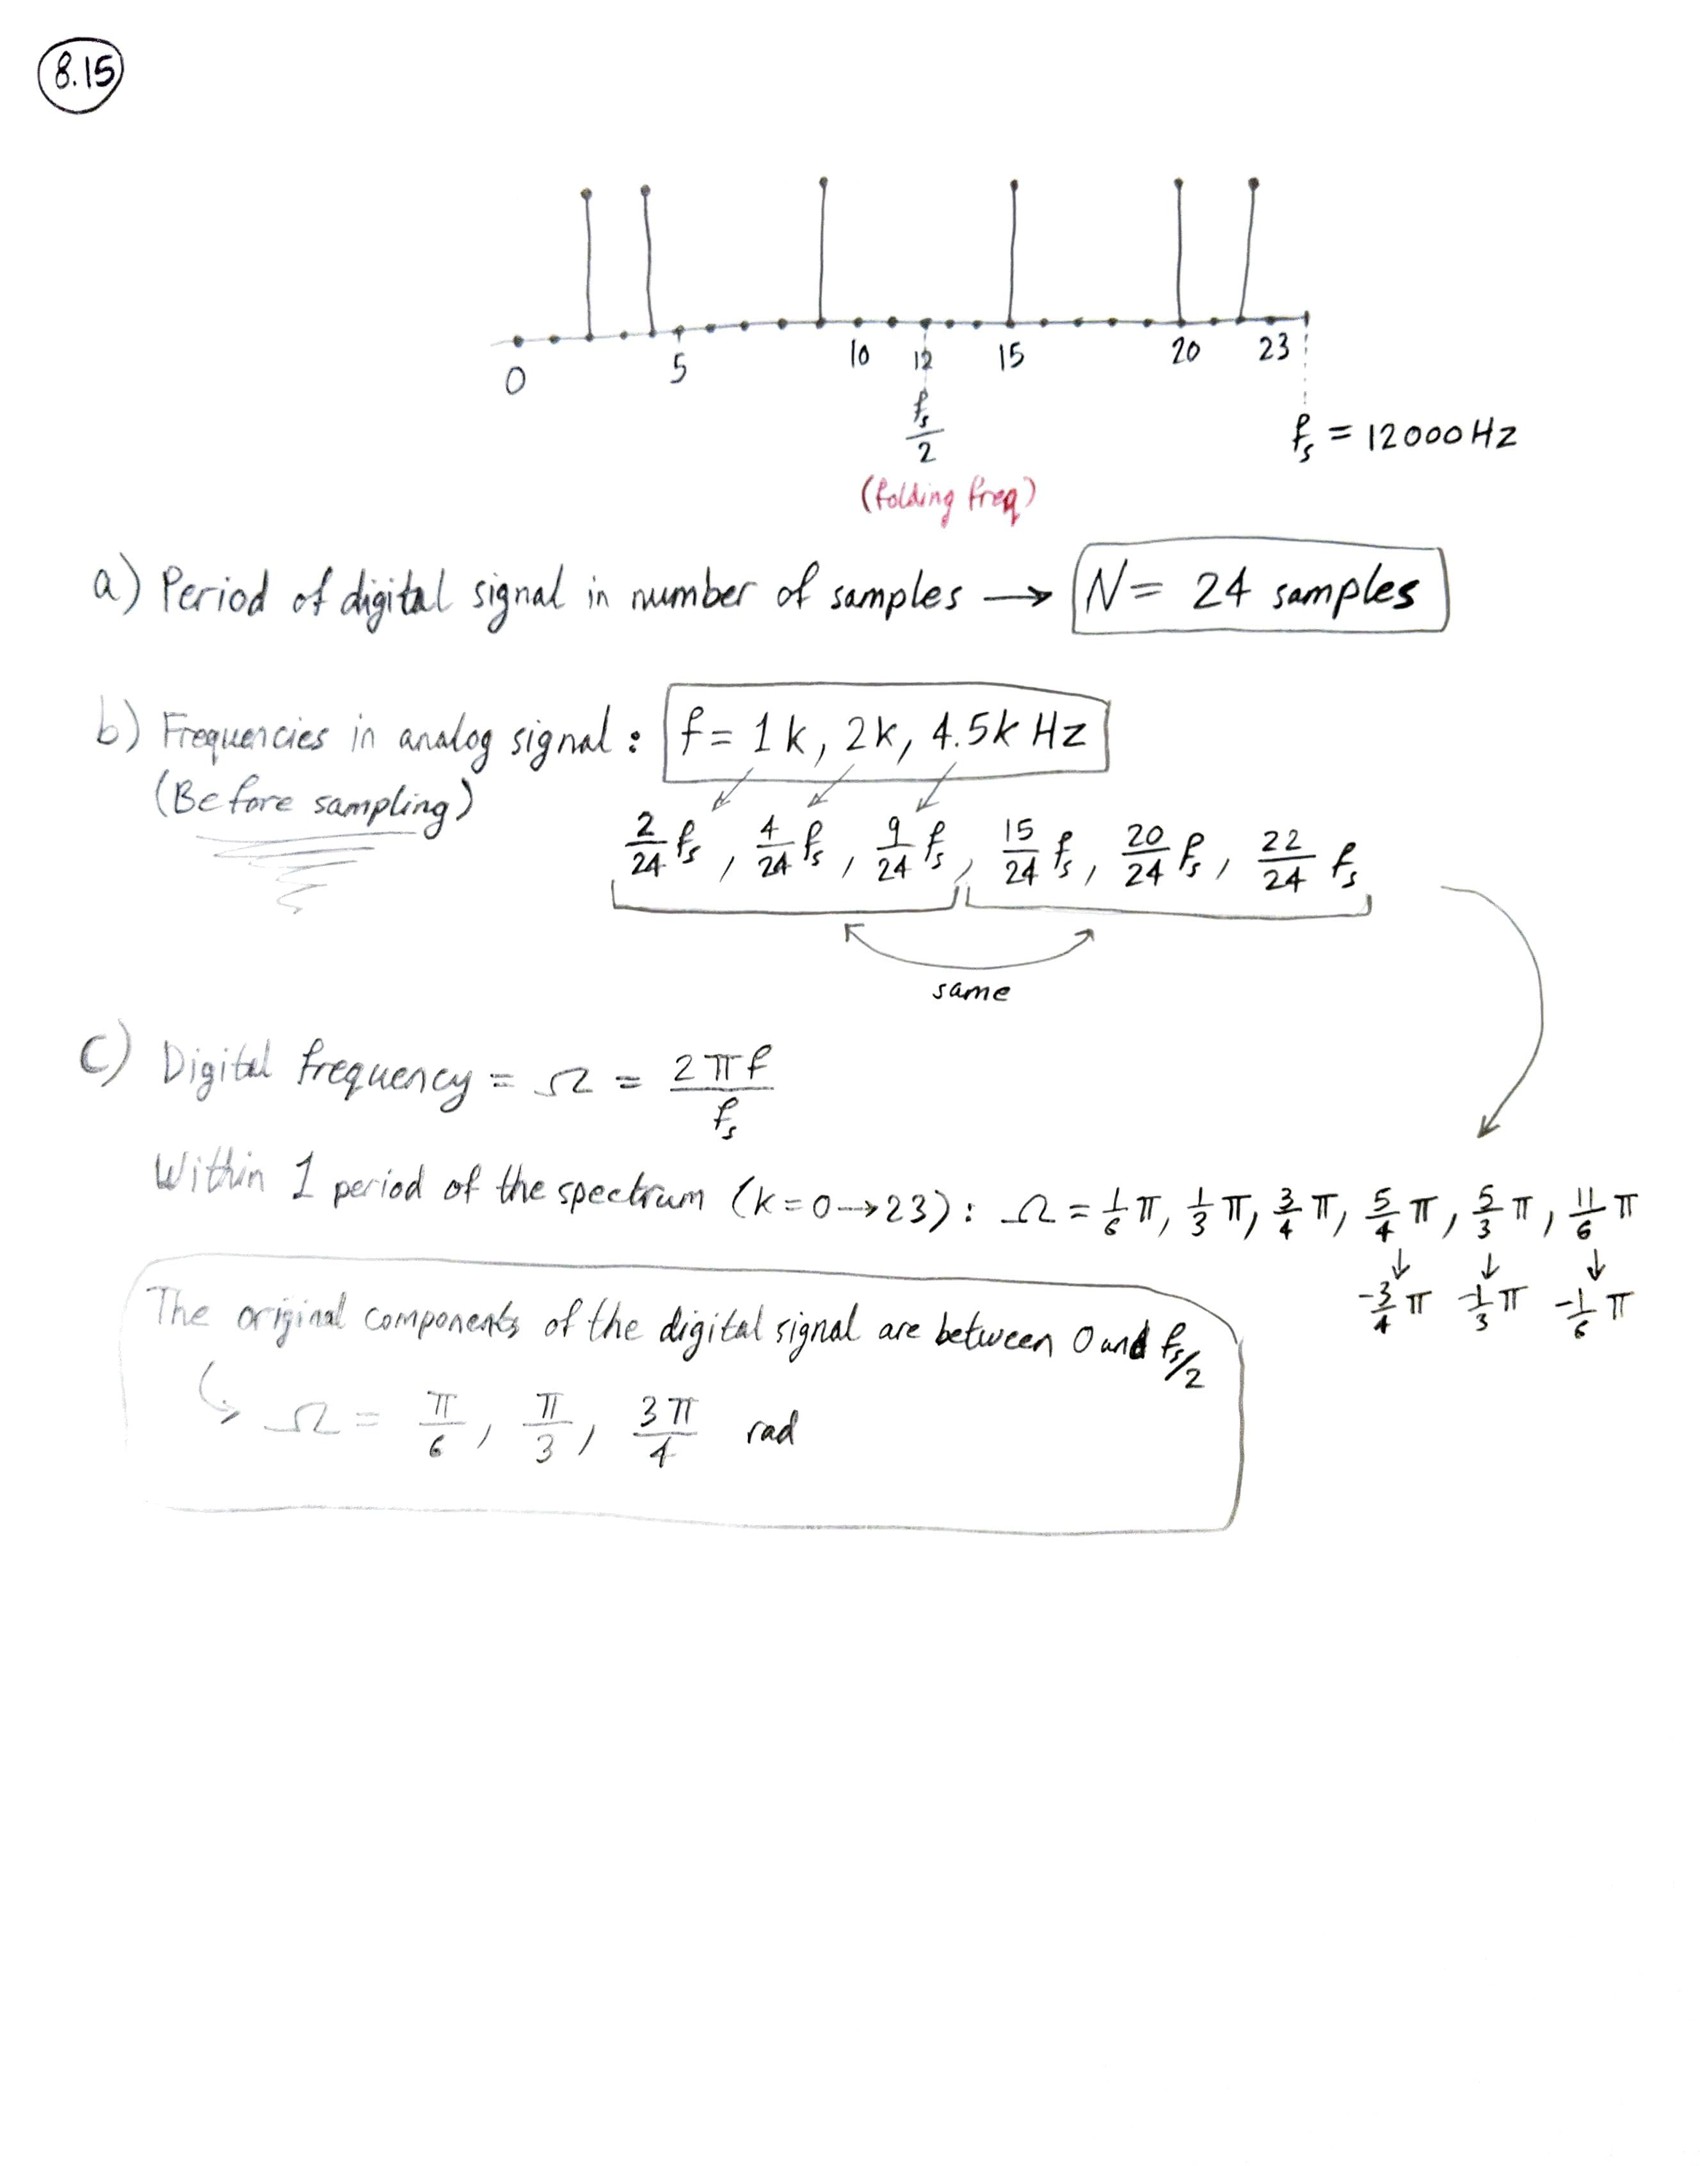 8.15
0 5 10 12 15 20 23
fs/2
fs = 12000 Hz
(folding freq)
a) Period of digital signal in number of samples → N = 24 samples
b) Frequencies in analog signal : f = 1k, 2k, 4.5k Hz
(Before sampling)
2/24 fs , 4/24 fs , 9/24 fs , 15/24 fs , 20/24 fs , 22/24 fs
same
c) Digital frequency = Ω = 2πf/fs
Within 1 period of the spectrum (k = 0→23) : Ω = 1/6 π, 1/3 π, 3/4 π, 5/4 π, 5/3 π, 11/6 π
↓ ↓ ↓
-3/4 π -1/3 π -1/6 π
The original components of the digital signal are between 0 and fs/2
↳ Ω = π/6 , π/3 , 3π/4 rad